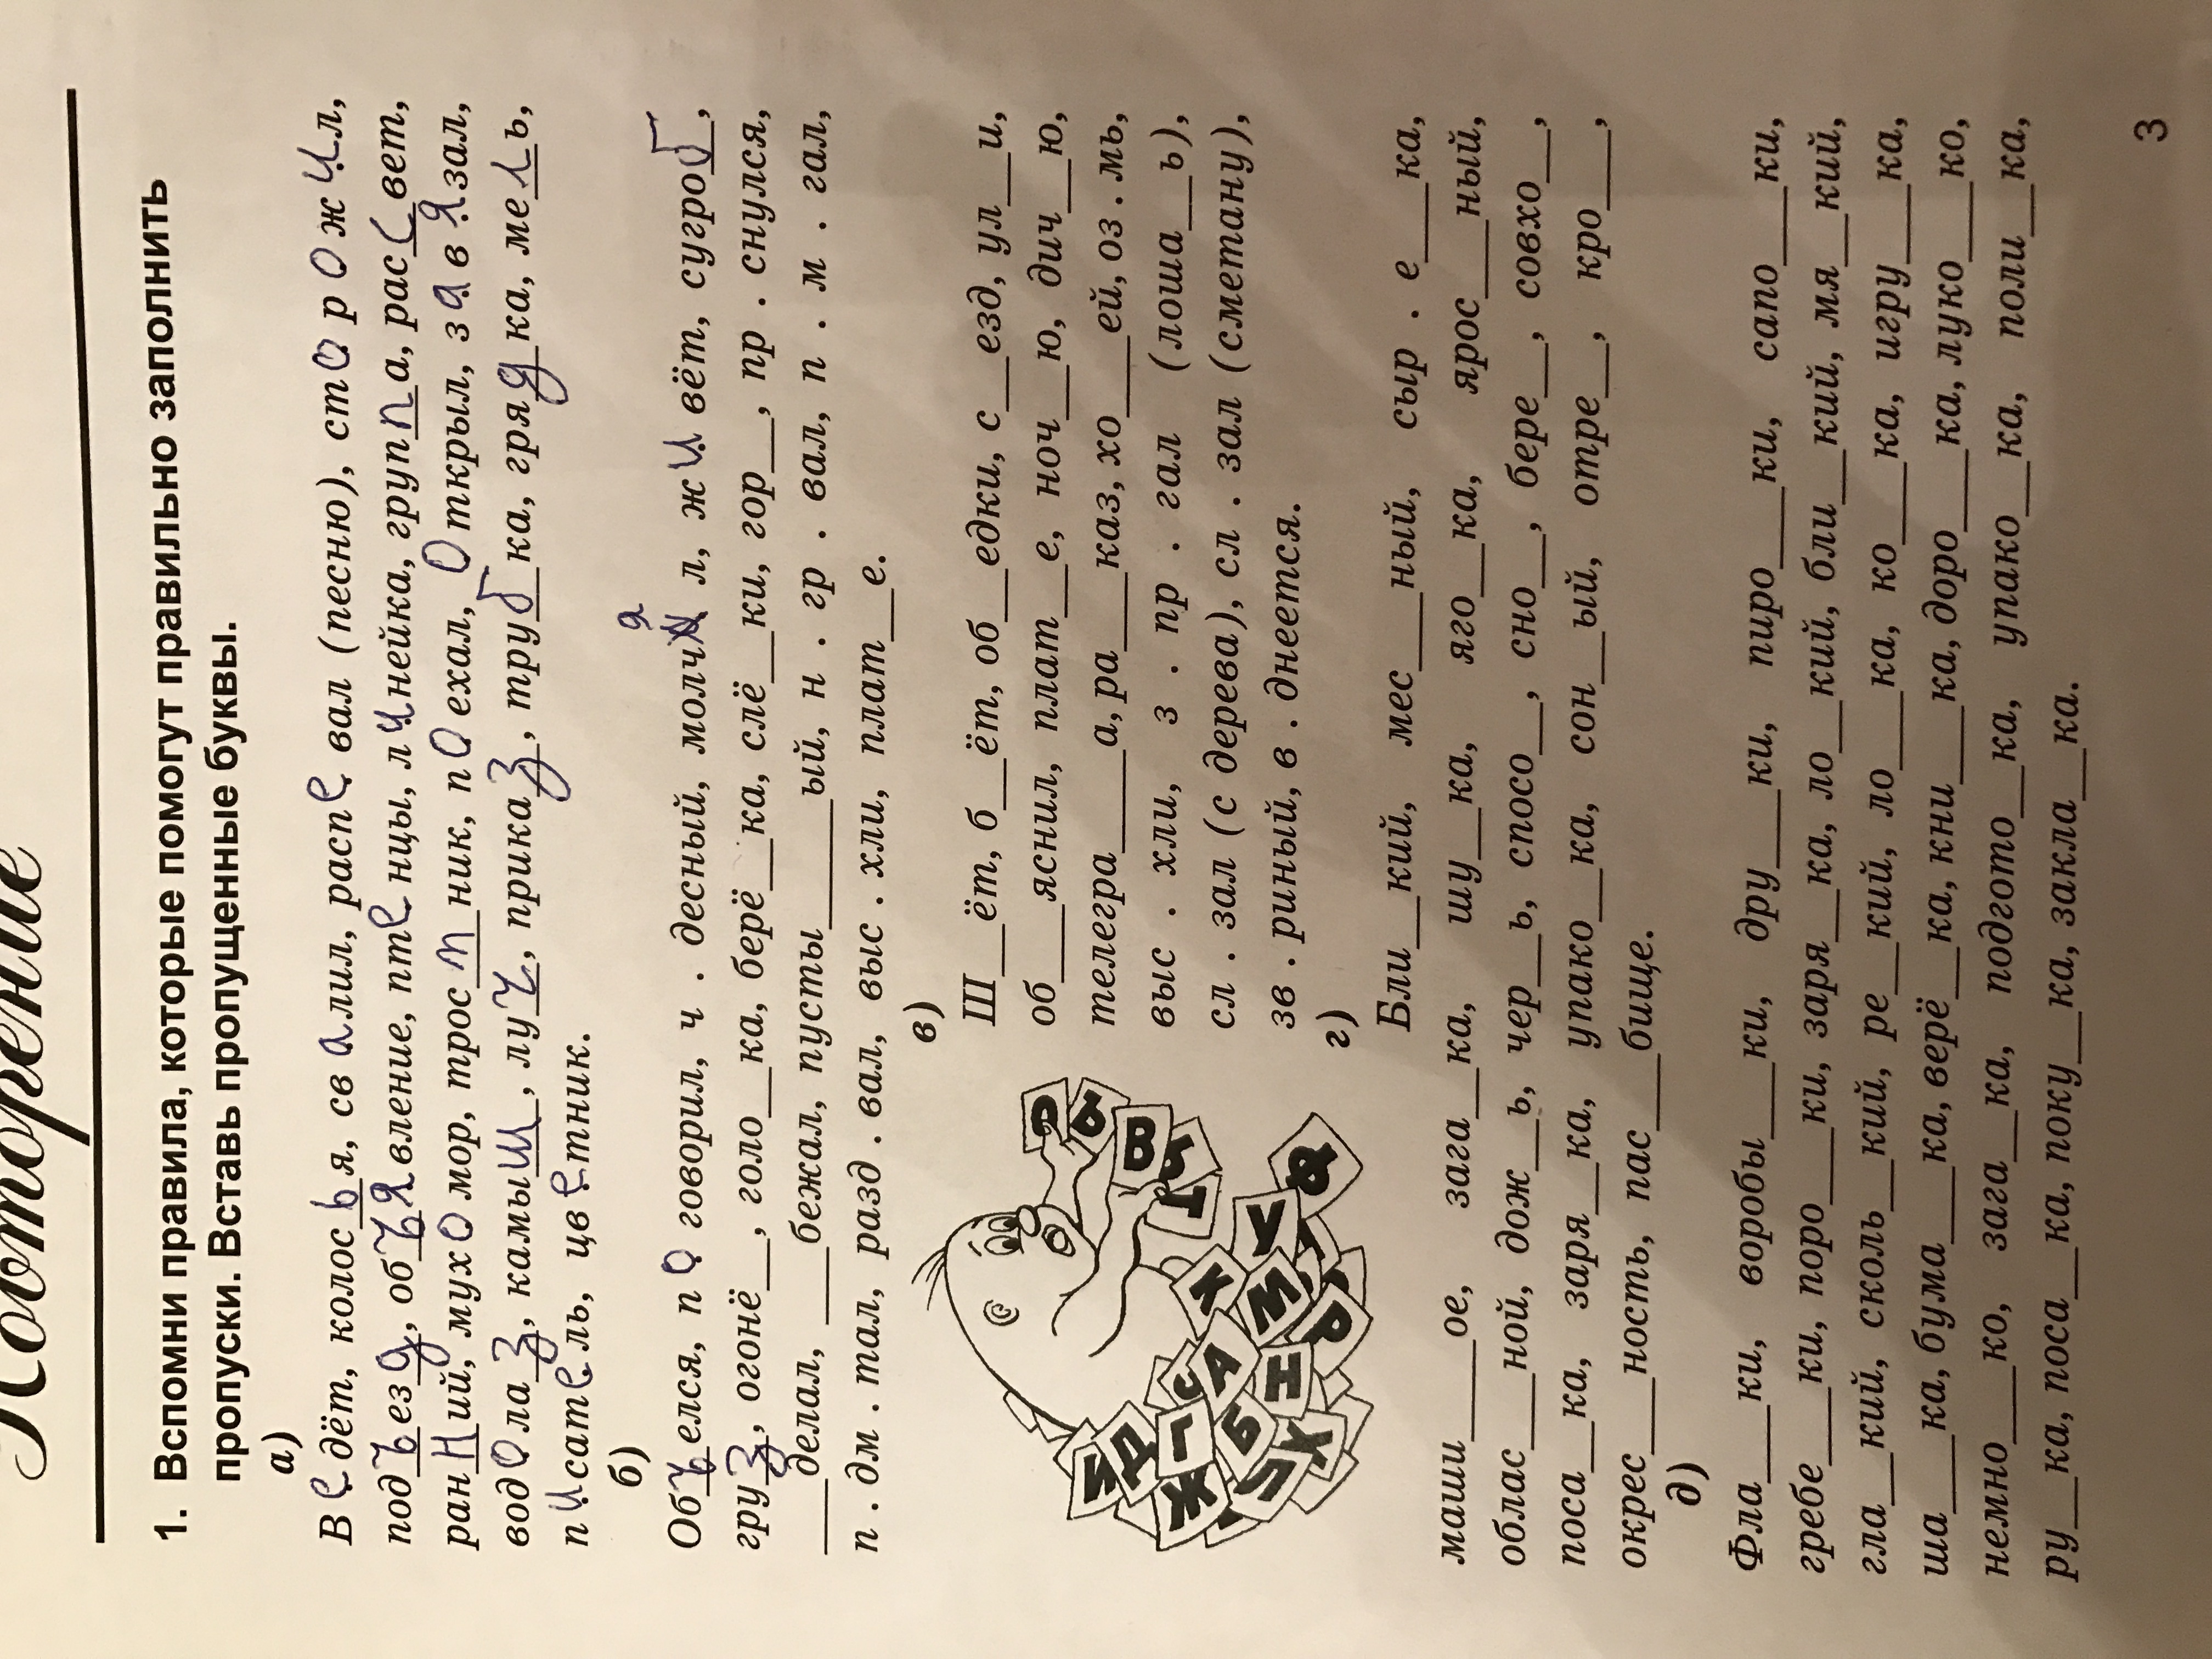 Повторение
1. Вспомни правила, которые помогут правильно заполнить
пропуски. Вставь пропущенные буквы.
а)
Ведёт, колосья, свалил, распевал (песню), сторожил,
подъезд, объявление, птенцы, линейка, группа, рассвет,
ранний, мухомор, тростник, поехал, Открыл, завязал,
водолаз, камыш, луч, приказ, трубка, грядка, мель,
писатель, цветник.
б)
Объелся, поговорил, ч . десный, молчя л, живёт, сугроб,
груз, огонё__, голо__ка, берё__ка, слё__ки, гор__, пр . снулся,
___делал, ___бежал, пусты_____ый, н . гр . вал, п . м . гал,
п . дм . тал, разд . вал, выс . хли, плат__е.
в)
Ш__ёт, б__ёт, об__едки, с__езд, ул__и,
об___яснил, плат__е, ноч__ю, дич__ю,
телегра____а, ра___каз, хо___ей, оз . мь,
выс . хли, з . пр . гал (лоша__ь),
сл . зал (с дерева), сл . зал (сметану),
зв . риный, в . днеется.
г)
Бли__кий, мес___ный, сыр . е___ка,
маши____ое, зага__ка, шу__ка, яго__ка, ярос___ный,
облас___ной, дож__ь, чер__ь, спосо__, сно__, бере__, совхо__,
поса__ка, заря__ка, упако__ка, сон__ый, отре__, кро___,
окрес___ность, пас___бище.
д)
Фла___ки, воробы___ки, дру___ки, пиро___ки, сапо___ки,
гребе___ки, поро___ки, заря__ка, ло__кий, бли__кий, мя__кий,
гла__кий, сколь__кий, ре__кий, ло___ка, ко___ка, игру___ка,
ша___ка, бума___ка, верё__ка, кни___ка, доро___ка, луко___ко,
немно___ко, зага__ка, подгото__ка, упако__ка, поли__ка,
ру__ка, поса__ка, поку__ка, закла__ка.
И Д Ж Г А К Б Л Х Н М У Р Ф В Ъ Ч
3